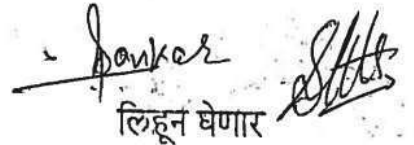 Sankar
लिहून घेणार